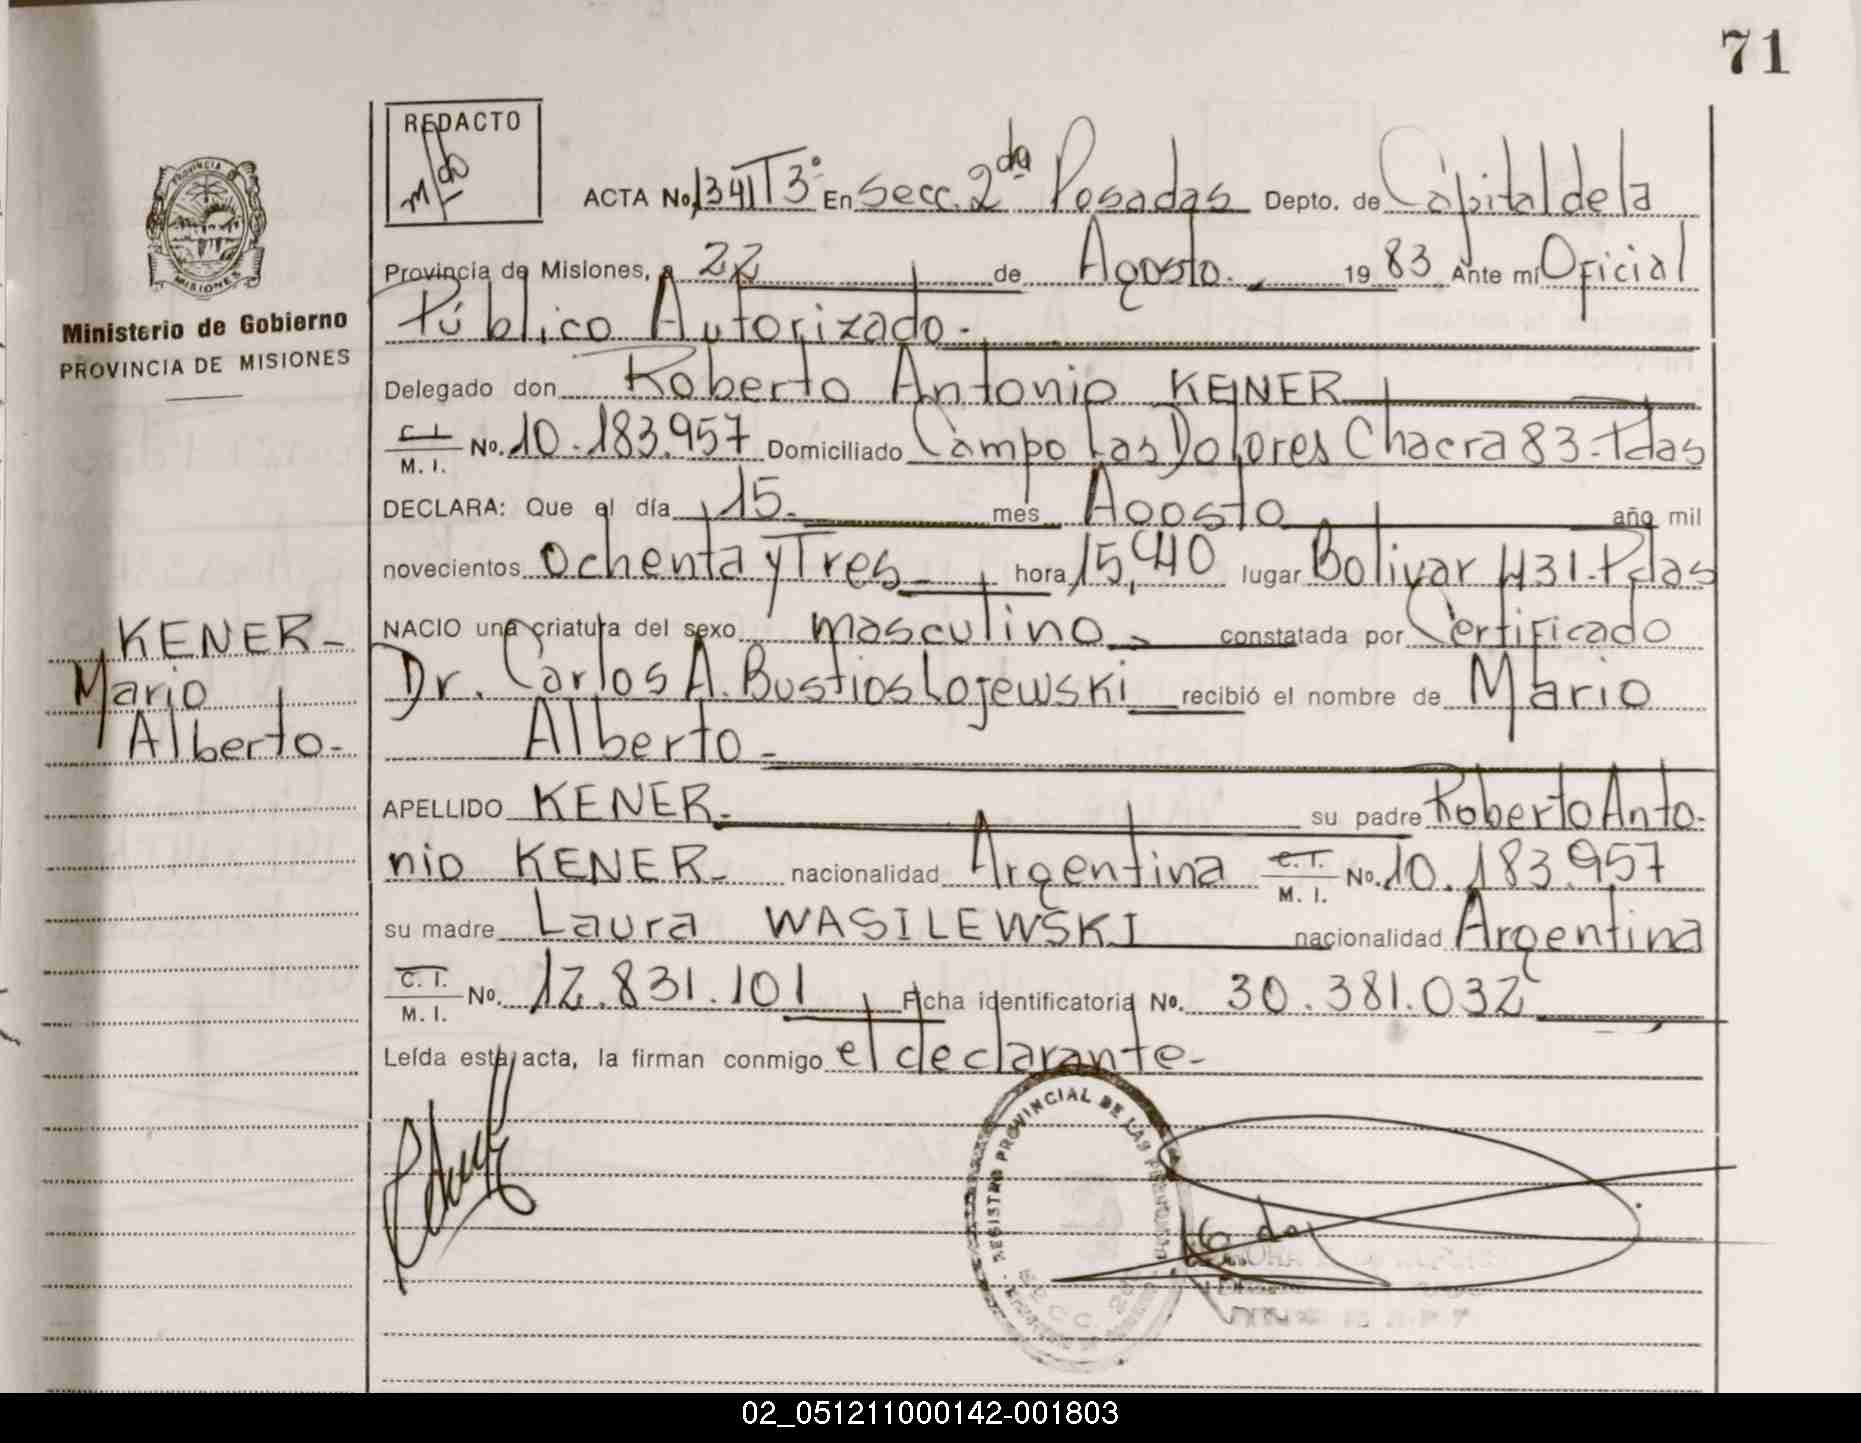 71
REDACTO
ACTA No. 1341 T 3º En Secc. 2da Posadas Depto. de Capital de la
PROVINCIA
MISIONES
Provincia de Misiones, a 22 de Agosto. 1983 Ante mí Oficial
Público Autorizado.
Ministerio de Gobierno
PROVINCIA DE MISIONES
Delegado don Roberto Antonio KENER
C. I.
M. I. No. 10.183.957 Domiciliado Campo Las Dolores Chacra 83-Pdas
DECLARA: Que el día 15. mes Agosto año mil
novecientos ochenta y Tres hora 15,40 lugar Bolivar 431-Pdas
NACIO una criatura del sexo masculino constatada por Certificado
KENER-
Mario
Alberto-
Dr. Carlos A. Bustios Lojewski recibió el nombre de Mario
Alberto-
APELLIDO KENER- su padre Roberto Anto-
nio KENER- nacionalidad Argentina C. I. M. I. No. 10.183.957
su madre Laura WASILEWSKI nacionalidad Argentina
C. I.
M. I. No. 12.831.101 Ficha identificatoria No. 30.381.032
Leída esta acta, la firman conmigo el declarante-
REGISTRO PROVINCIAL DE LAS
02_051211000142-001803